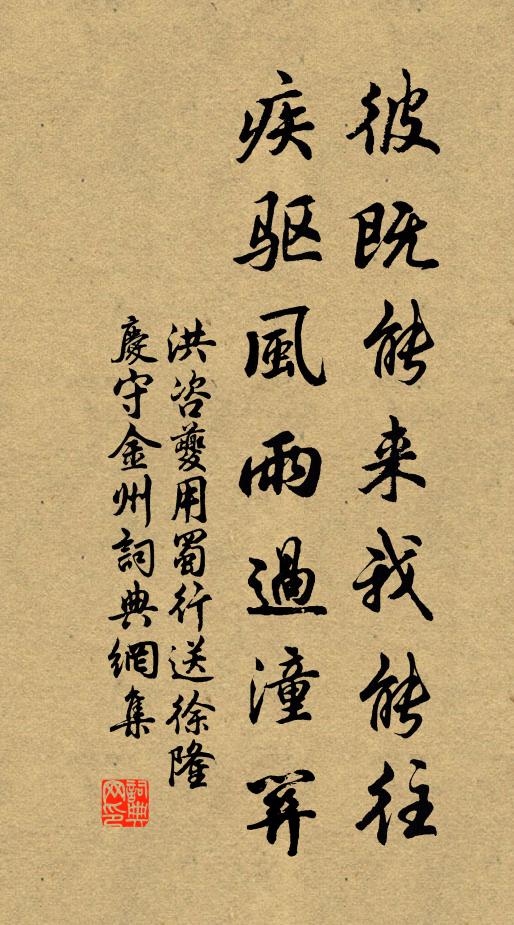 彼既能来我能往
疾驱風雨過潼関
洪咨夔用蜀行送徐隆
慶守金州詞典網集
詞典
网印